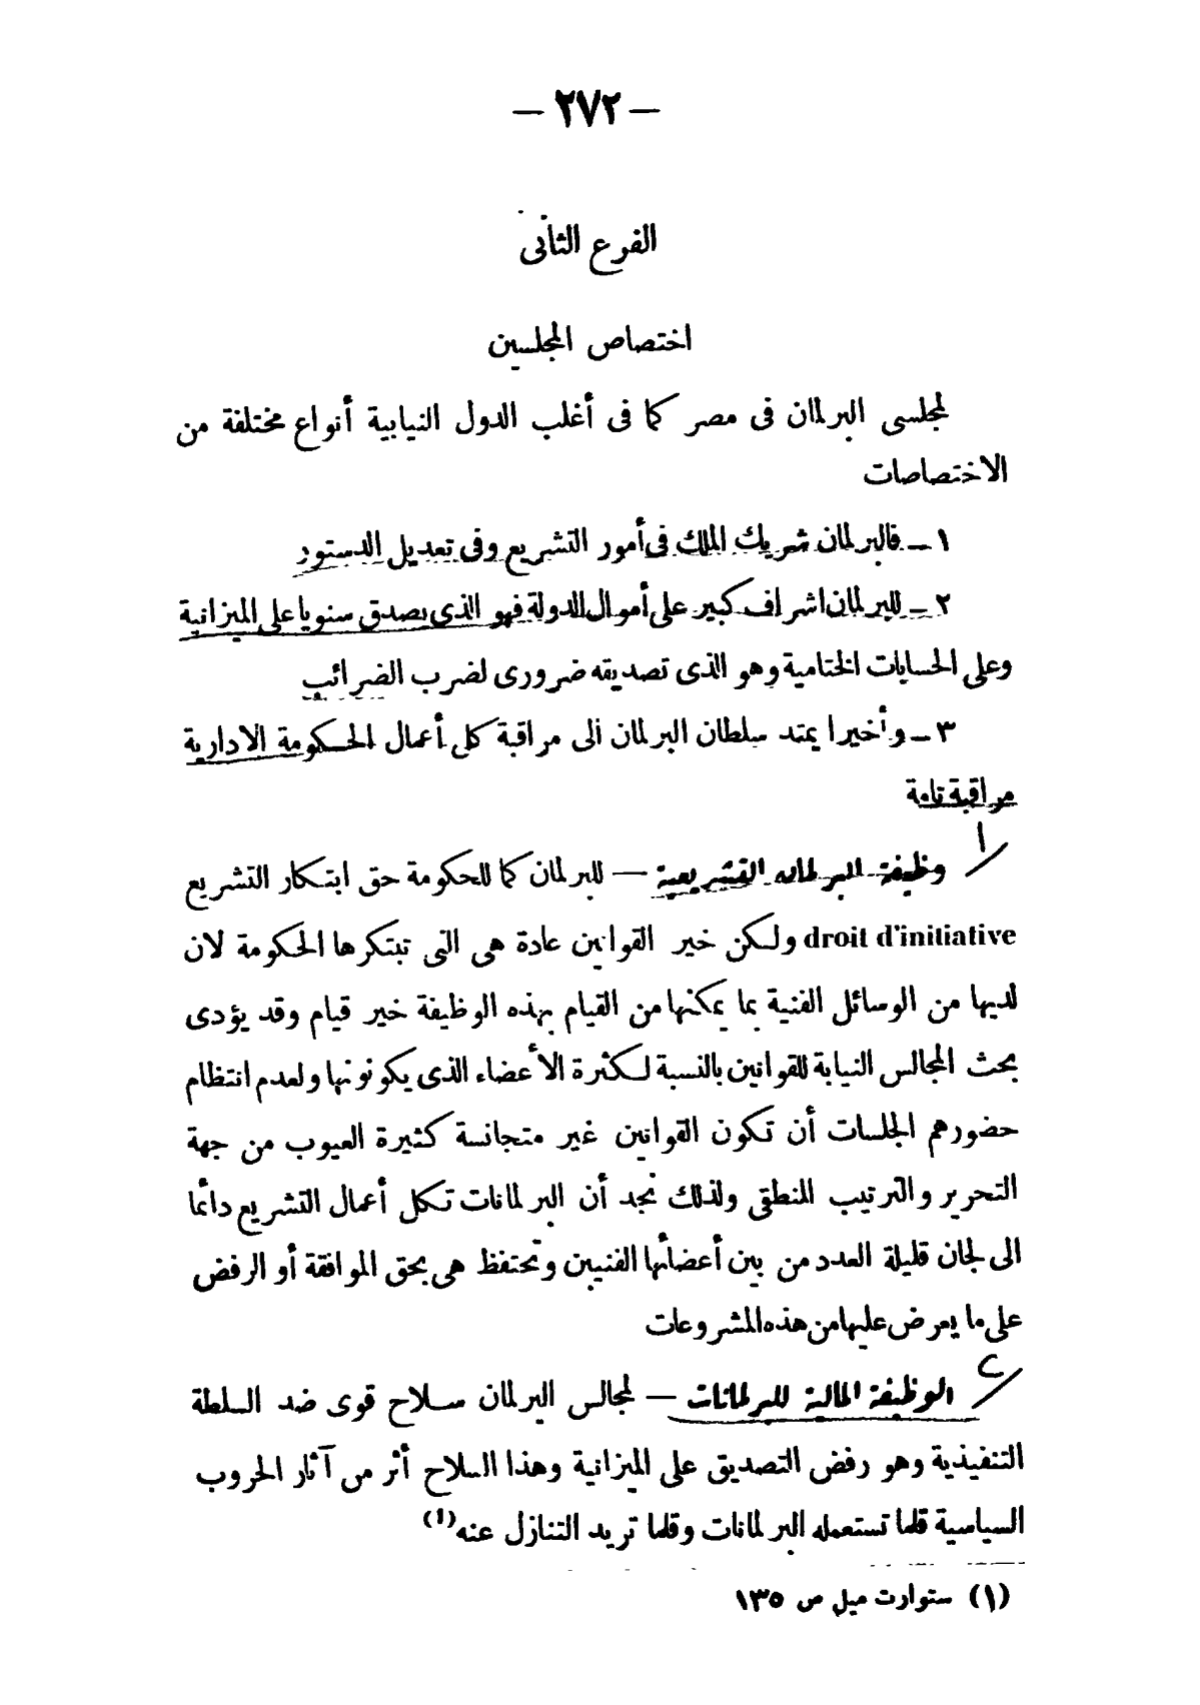 — ٢٧٢ —
الفرع الثانى
اختصاص المجلسين
لمجلسى البرلمان فى مصر كما فى أغلب الدول النيابية أنواع مختلفة من
الاختصاصات
١ ــ فالبرلمان شريك الملك فى أمور التشريع وفى تعديل الدستور
٢ ــ للبرلمان اشراف كبير على أموال الدولة فهو الذى يصدق سنويا على الميزانية
وعلى الحسابات الختامية وهو الذى تصديقه ضرورى لضرب الضرائب
٣ ــ وأخيرا يمتد سلطان البرلمان الى مراقبة كل أعمال الحكومة الادارية
مراقبة تامة
١/ وظيفة البرلمان التشريعية — للبرلمان كما للحكومة حق ابتكار التشريع
droit d'initiative ولكن خير القوانين عادة هى التى تبتكرها الحكومة لان
لديها من الوسائل الفنية بما يمكنها من القيام بهذه الوظيفة خير قيام وقد يؤدى
بحث المجالس النيابة للقوانين بالنسبة لكثرة الأعضاء الذى يكونونها ولعدم انتظام
حضورهم الجلسات أن تكون القوانين غير متجانسة كثيرة العيوب من جهة
التحرير والترتيب المنطقى ولذلك نجد أن البرلمانات تكل أعمال التشريع دائما
الى لجان قليلة العدد من بين أعضائها الفنيين وتحتفظ هى بحق الموافقة أو الرفض
على ما يعرض عليها من هذه المشروعات
٢/ الوظيفة المالية للبرلمانات — لمجالس البرلمان سلاح قوى ضد السلطة
التنفيذية وهو رفض التصديق على الميزانية وهذا السلاح أثر من آثار الحروب
السياسية قلما تستعمله البرلمانات وقلما تريد التنازل عنه (١)
(١) ستوارت ميل ص ١٣٥